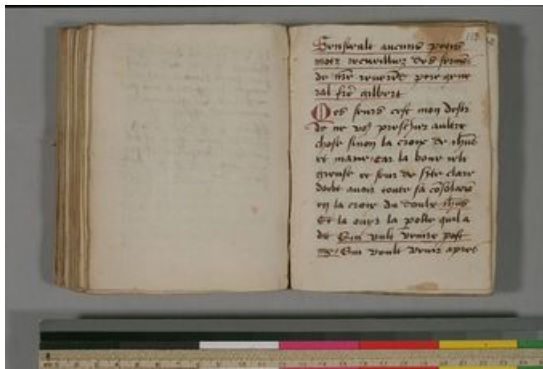 Sensuite aucuns petis
motz recueilliez des sermōs
de nr̄e reuerēd pere gene
ral frē gilbert
Mes seurs cest mon desir
de ne voꝰ prescher aultre
chose sinon la croix de ihūs
et marie car la bone reli
gieuse et seur de sc̄te clare
doibt auoir toute sa cōsolaciō
en la croix du doulx ihūs
Et la oups la polle quil a
dit Qui vult venire post
me Qui veult venir apres